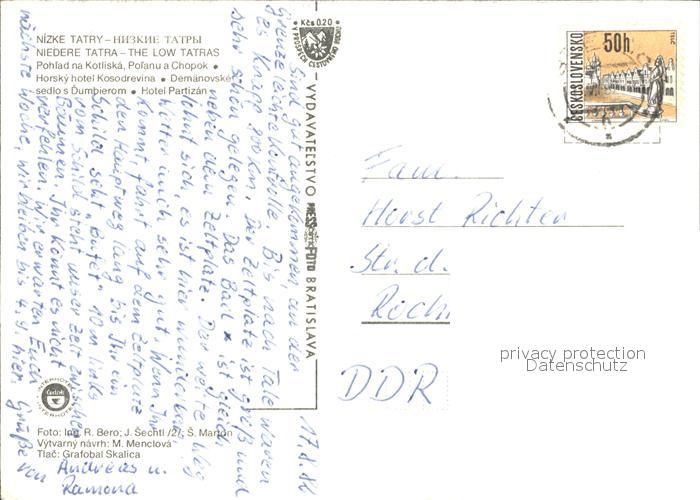 NÍZKE TATRY – НИЗКИЕ ТАТРЫ
NIEDERE TATRA – THE LOW TATRAS
Pohľad na Kotliská, Poľanu a Chopok •
Horský hotel Kosodrevina • Demänovské
sedlo s Ďumbierom • Hotel Partizán
Kčs 0.20
V PROSPECH CESTOVNÉHO RUCHU
VYDAVATEĽSTVO PRESSFOTO BRATISLAVA
ČESKOSLOVENSKO
50h
TELČ
17.8.
Sind gut angekommen an der
Grenze leichte Kontrolle. Bis nach Tale waren
es knapp 800 km. Der Zeltplatz ist groß und
sehr schön gelegen. Das Bad ist gleich
neben dem Zeltplatz. Der weite Weg
lohnt sich, es ist hier wunderbar.
Wetter auch sehr gut. Wenn Ihr
kommt, fahrt auf dem Zeltplatz
den Hauptweg lang bis Ihr ein
Schild seht "Bufet" 10 m links
vom Schild steht unser Zelt zwischen
Bäumen. Ihr könnt es nicht
verfehlen. Wir erwarten Euch
nächste Woche, wir bleiben bis 4.9. hier. Grüße
von
Andreas u.
Ramona
Fam.
Horst Richter
Str. d.
Roch
DDR
privacy protection
Datenschutz
INTERHOTEL
Foto: Ing. R. Bero; J. Šechtl /2/; Š. Martoň
Výtvarný návrh: M. Menclová
Tlač: Grafobal Skalica